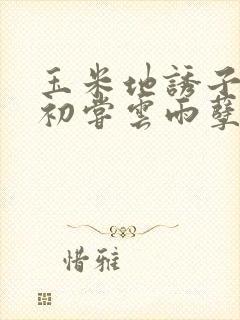 玉米地誘子
初嘗雲雨孽
惜雅